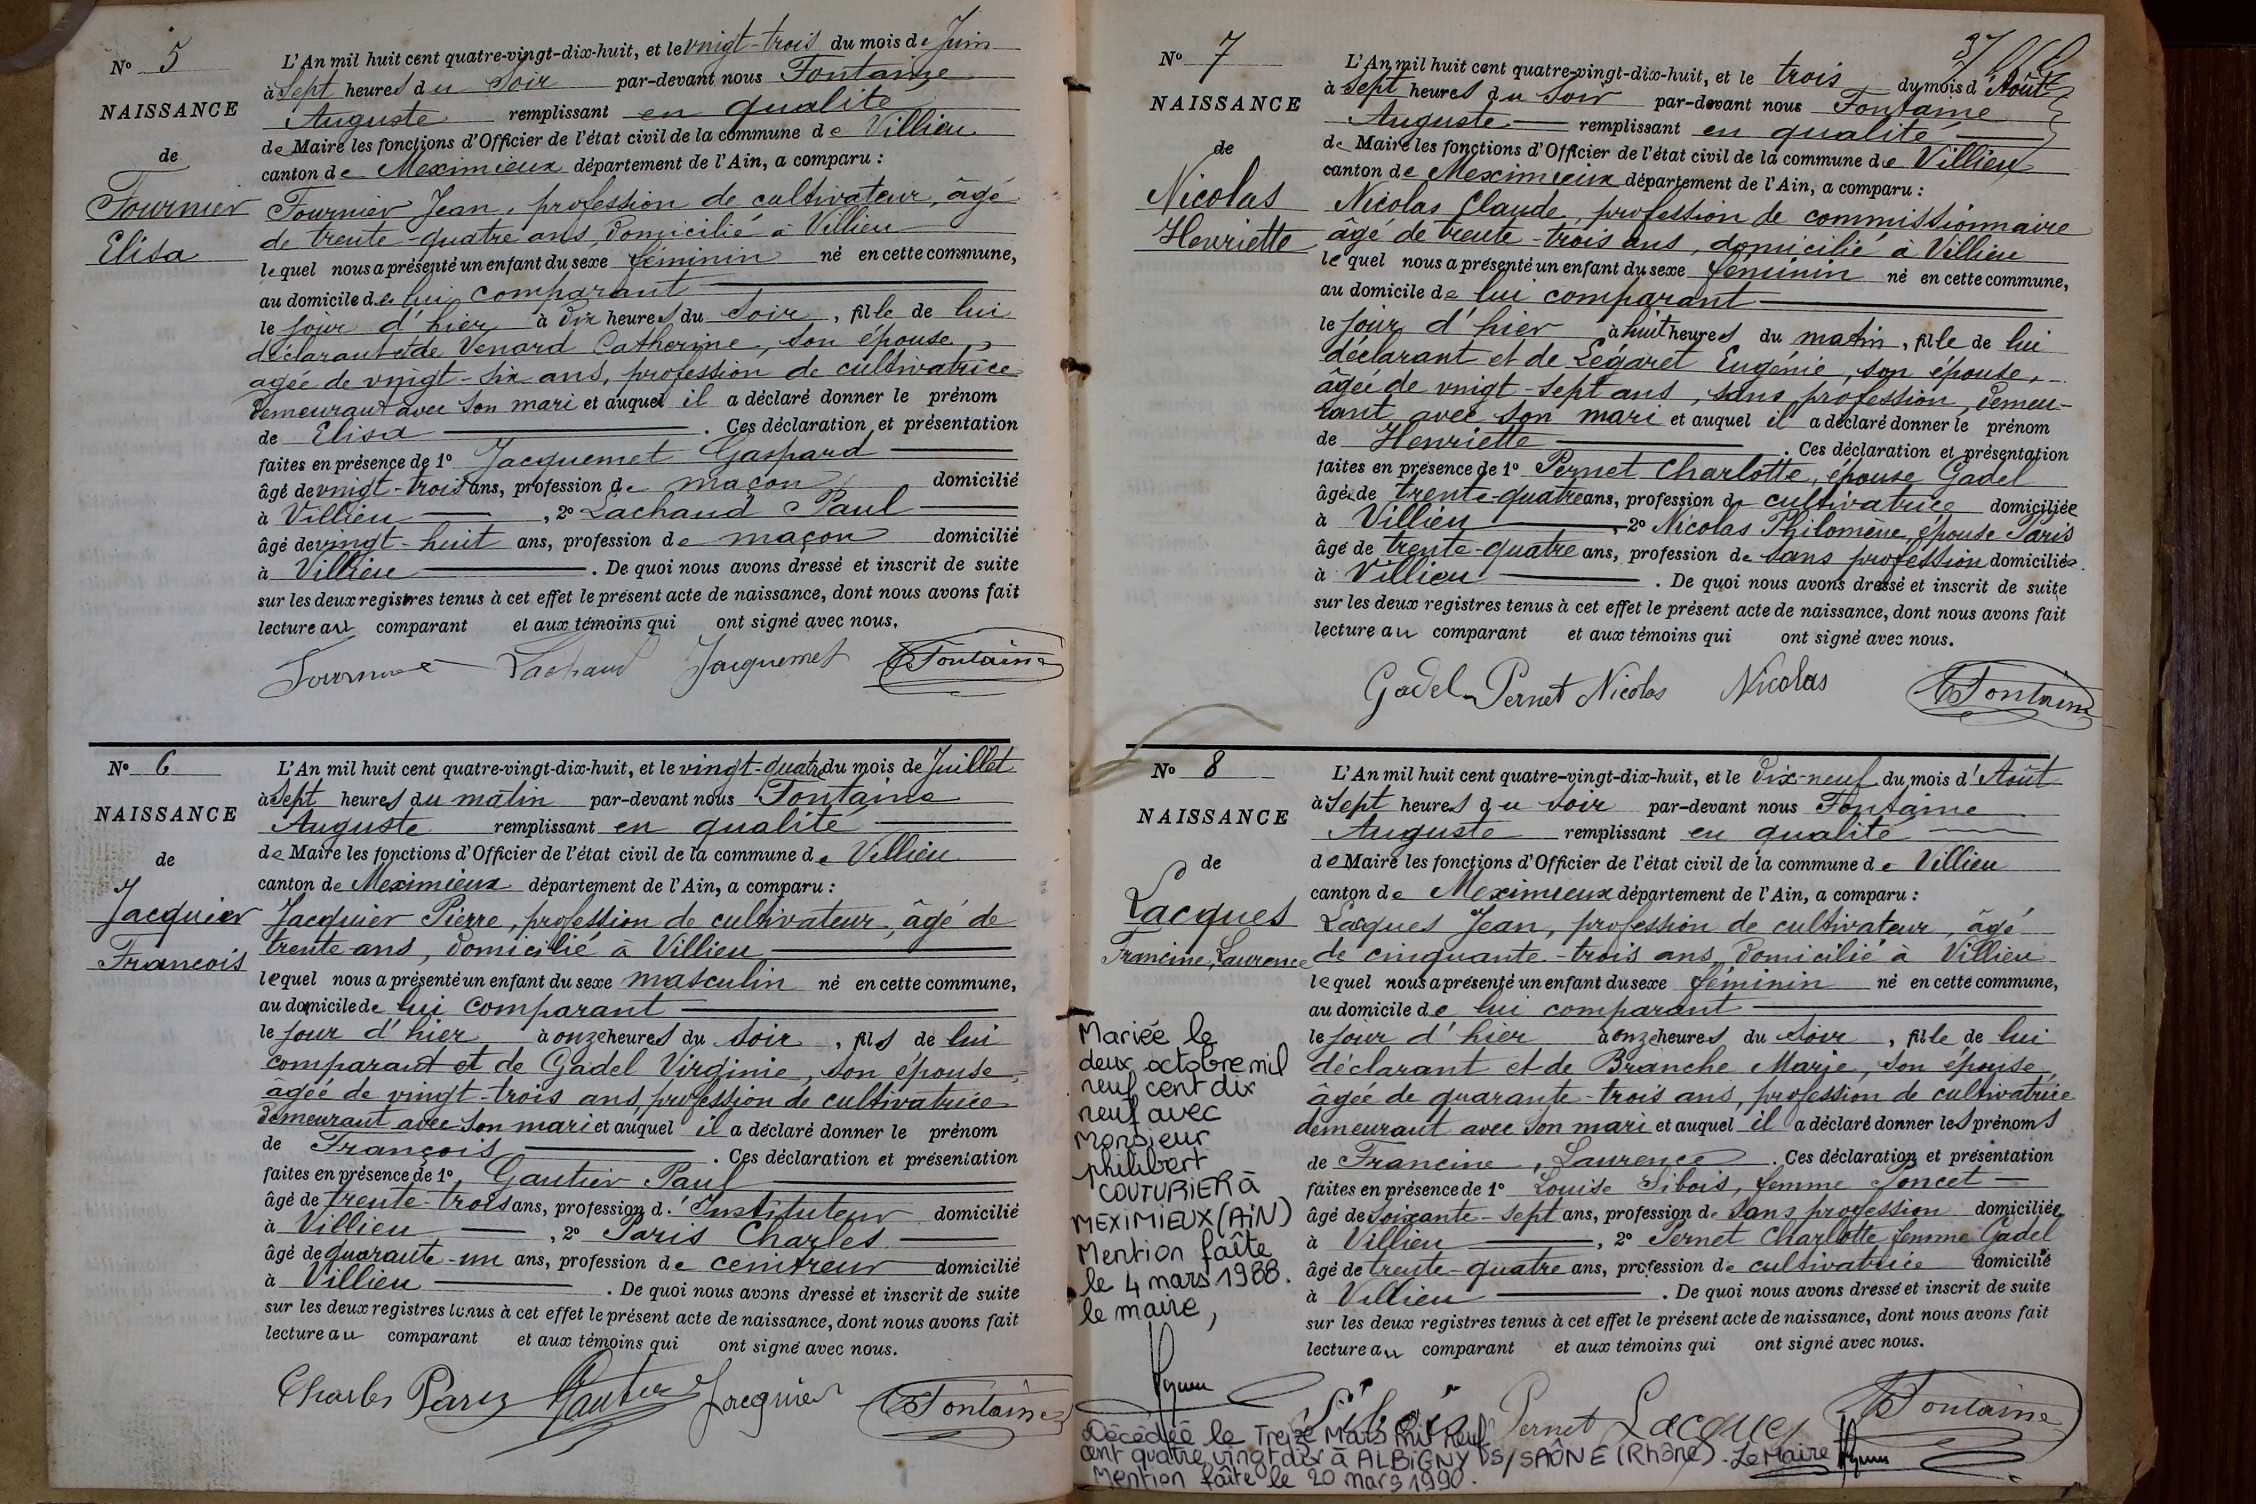 N° 5
NAISSANCE
de
Fournier
Elisa
L'An mil huit cent quatre-vingt-dix-huit, et le vnigt-trois du mois de Juin
à sept heures du soir par-devant nous Fontaine
Auguste remplissant en qualité
de Maire les fonctions d'Officier de l'état civil de la commune de Villieu
canton de Meximieux département de l'Ain, a comparu :
Fournier Jean, profession de cultivateur, âgé
de trente-quatre ans, domicilié à Villieu
lequel nous a présenté un enfant du sexe féminin né en cette commune,
au domicile de lui comparant
le jour d'hier à dix heures du soir, fille de lui
déclarant et de Venard Catherine, son épouse,
agée de vnigt-six ans, profession de cultivatrice
demeurant avec son mari et auquel il a déclaré donner le prénom
de Elisa . Ces déclaration et présentation
faites en présence de 1° Jacquemet Gaspard
âgé de vnigt-trois ans, profession de maçon domicilié
à Villieu , 2° Lachaud Paul
âgé de vingt-huit ans, profession de maçon domicilié
à Villieu . De quoi nous avons dressé et inscrit de suite
sur les deux registres tenus à cet effet le présent acte de naissance, dont nous avons fait
lecture au comparant et aux témoins qui ont signé avec nous.
Lachaud Jacquemet Fontaine
N° 6
NAISSANCE
de
Jacquier
Francois
L'An mil huit cent quatre-vingt-dix-huit, et le vingt-quatre du mois de Juillet
à sept heures du matin par-devant nous Fontaine
Auguste remplissant en qualité
de Maire les fonctions d'Officier de l'état civil de la commune de Villieu
canton de Meximieux département de l'Ain, a comparu :
Jacquier Pierre, profession de cultivateur, âgé de
trente ans, domicilié à Villieu
lequel nous a présenté un enfant du sexe masculin né en cette commune,
au domicile de lui comparant
le jour d'hier à onze heures du soir, fils de lui
comparant et de Gadel Virginie, son épouse,
âgée de vingt-trois ans, profession de cultivatrice
demeurant avec son mari et auquel il a déclaré donner le prénom
de François . Ces déclaration et présentation
faites en présence de 1° Gautier Paul
âgé de trente-trois ans, profession d'Instituteur domicilié
à Villieu , 2° Paris Charles
âgé de quarante-un ans, profession de domicilié
à Villieu . De quoi nous avons dressé et inscrit de suite
sur les deux registres tenus à cet effet le présent acte de naissance, dont nous avons fait
lecture au comparant et aux témoins qui ont signé avec nous.
Charles Paris Gautier Jacquier Fontaine
37
N° 7
NAISSANCE
de
Nicolas
Henriette
L'An mil huit cent quatre-vingt-dix-huit, et le trois du mois d'Août
à sept heures du soir par-devant nous Fontaine
Auguste remplissant en qualité
de Maire les fonctions d'Officier de l'état civil de la commune de Villieu
canton de Meximieux département de l'Ain, a comparu :
Nicolas Claude, profession de commissionnaire
âgé de trente-trois ans, domicilié à Villieu
lequel nous a présenté un enfant du sexe féminin né en cette commune,
au domicile de lui comparant
le jour d'hier à huit heures du matin, fille de lui
déclarant et de Légaret Eugénie, son épouse,
âgée de vnigt-sept ans, sans profession, demeu-
rant avec son mari et auquel il a déclaré donner le prénom
de Henriette . Ces déclaration et présentation
faites en présence de 1° Pernet Charlotte, épouse Gadel
âgée de trente-quatre ans, profession de cultivatrice domiciliée
à Villieu , 2° Nicolas Philomène, épouse Paris
âgé de trente-quatre ans, profession de sans profession domiciliée
à Villieu . De quoi nous avons dressé et inscrit de suite
sur les deux registres tenus à cet effet le présent acte de naissance, dont nous avons fait
lecture au comparant et aux témoins qui ont signé avec nous.
Gadel Pernet Nicolas Nicolas Fontaine
N° 8
NAISSANCE
de
Lacques
Francine, Laurence
L'An mil huit cent quatre-vingt-dix-huit, et le dix-neuf du mois d'Août
à sept heures du soir par-devant nous Fontaine
Auguste remplissant en qualité
de Maire les fonctions d'Officier de l'état civil de la commune de Villieu
canton de Meximieux département de l'Ain, a comparu :
Lacques Jean, profession de cultivateur, âgé
de cinquante-trois ans, domicilié à Villieu
lequel nous a présenté un enfant du sexe féminin né en cette commune,
au domicile de lui comparant
le jour d'hier à onze heures du soir, fille de lui
déclarant et de Branche Marie, son épouse,
âgée de quarante-trois ans, profession de cultivatrice
demeurant avec son mari et auquel il a déclaré donner les prénoms
de Francine, Laurence . Ces déclaration et présentation
faites en présence de 1° Louise Sibois, femme Poncet
âgé de soixante-sept ans, profession de sans profession domiciliée
à Villieu , 2° Pernet Charlotte femme Gadel
âgé de trente-quatre ans, profession de cultivatrice domicilié
à Villieu . De quoi nous avons dressé et inscrit de suite
sur les deux registres tenus à cet effet le présent acte de naissance, dont nous avons fait
lecture au comparant et aux témoins qui ont signé avec nous.
Sibois Pernet Lacques Fontaine
Mariée le
deux octobre mil
neuf cent dix
neuf avec
Monsieur
philibert
COUTURIER à
MEXIMIEUX (AIN)
Mention faîte
le 4 mars 1988.
le maire,
Décédée le Treize Mars mil neuf
cent quatre vingt dix à ALBIGNY s/SAÔNE (Rhône). Le Maire
Mention faîte le 20 mars 1990.